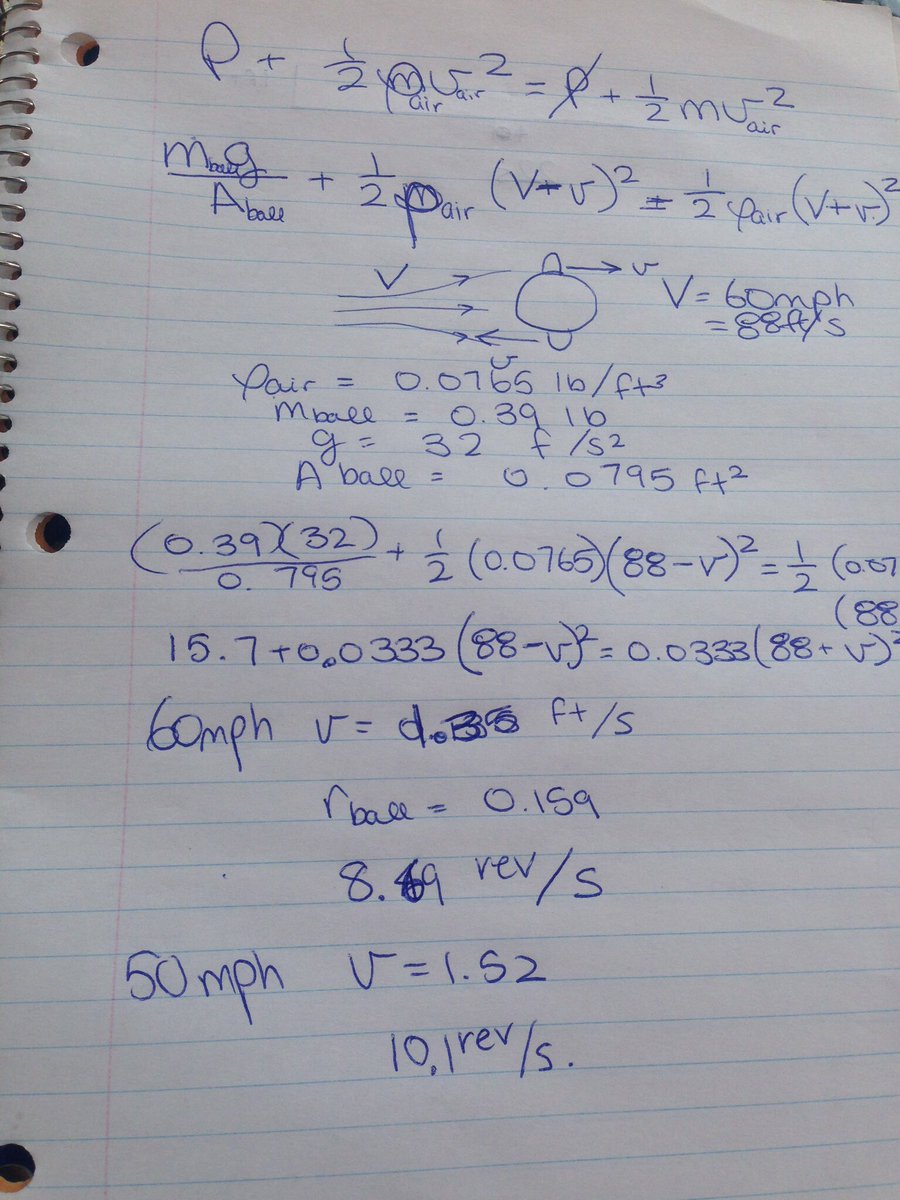 P + 1/2 ρair vair² = P + 1/2 m vair²
mball g / Aball + 1/2 ρair (V - v)² = 1/2 ρair (V + v)²
V v V = 60mph
= 88ft/s
v
ρair = 0.0765 lb/ft³
mball = 0.39 lb
g = 32 f/s²
A ball = 0.0795 ft²
(0.39)(32) / 0.795 + 1/2 (0.0765)(88-v)² = 1/2 (0.07
(88
15.7+0.0333(88-v)² = 0.0333(88+v)²
60mph v = ft/s
rball = 0.159
rev/s
50mph v = 1.52
10.1 rev/s.